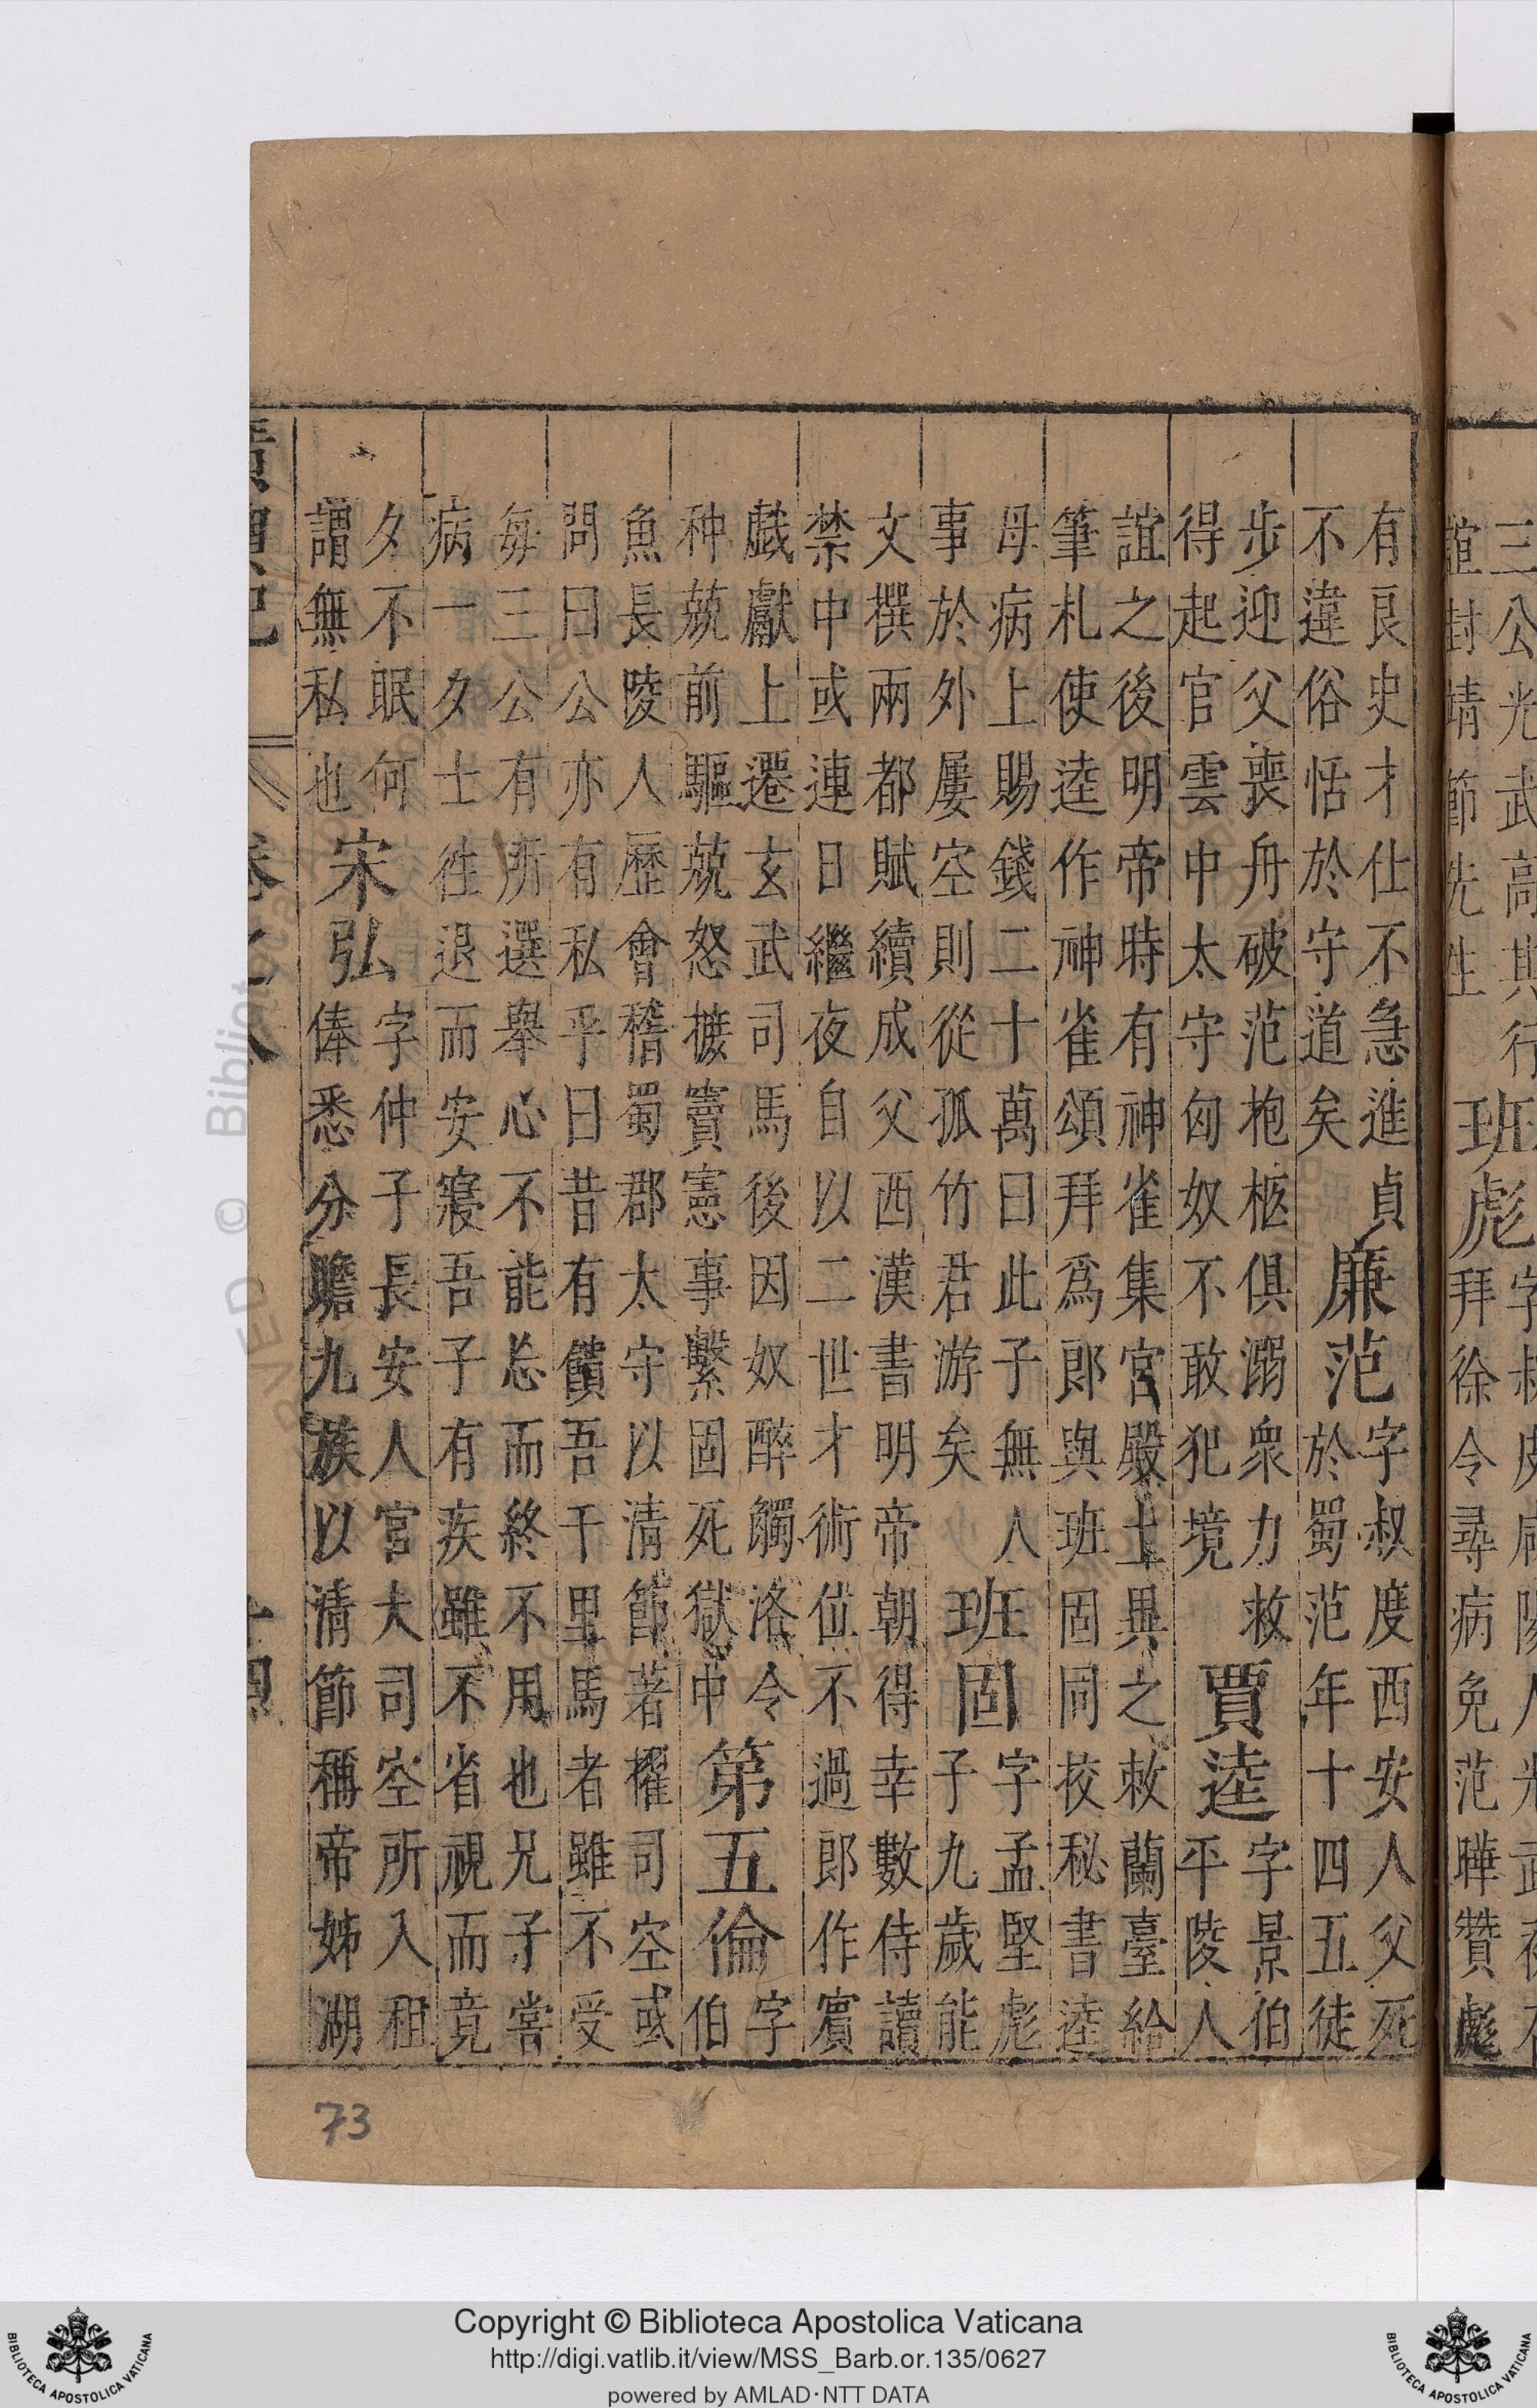 三公光武高其行
班彪
拜徐令尋病免范曄贊彪
有良史才仕不急進貞
不違俗恬於守道矣
廉范
字叔度西安人父死
於蜀范年十四五徒
步迎父喪舟破范抱柩俱溺衆力救
得起官雲中太守匈奴不敢犯境
賈逵
字景伯
平陵人
誼之後明帝時有神雀集宮殿上異之敕蘭臺給
筆札使逵作神雀頌拜爲郎與班固同挍秘書逵
母病上賜錢二十萬曰此子無人
事於外屢空則從孤竹君游矣
班固
字孟堅彪
子九歲能
文撰兩都賦續成父西漢書明帝朝得幸數侍讀
禁中或連日繼夜自以二世才術位不過郎作賓
戲獻上遷玄武司馬後因奴醉觸洛令
种兢前驅兢怒摭竇憲事繫固死獄中
第五倫
字
伯
魚長陵人歷會稽蜀郡太守以清節著擢司空或
問曰公亦有私乎曰昔有饋吾千里馬者雖不受
每三公有所選舉心不能忘而終不用也兄子嘗
病一夕士徃退而安寢吾子有疾雖不省視而竟
夕不眠何
謂無私也
宋弘
字仲子長安人官大司空所入租
俸悉分贍九族以清節稱帝姊湖
73
Copyright © Biblioteca Apostolica Vaticana
http://digi.vatlib.it/view/MSS_Barb.or.135/0627
powered by AMLAD·NTT DATA
BIBLIOTECA APOSTOLICA VATICANA
BIBLIOTECA APOSTOLICA VATICANA